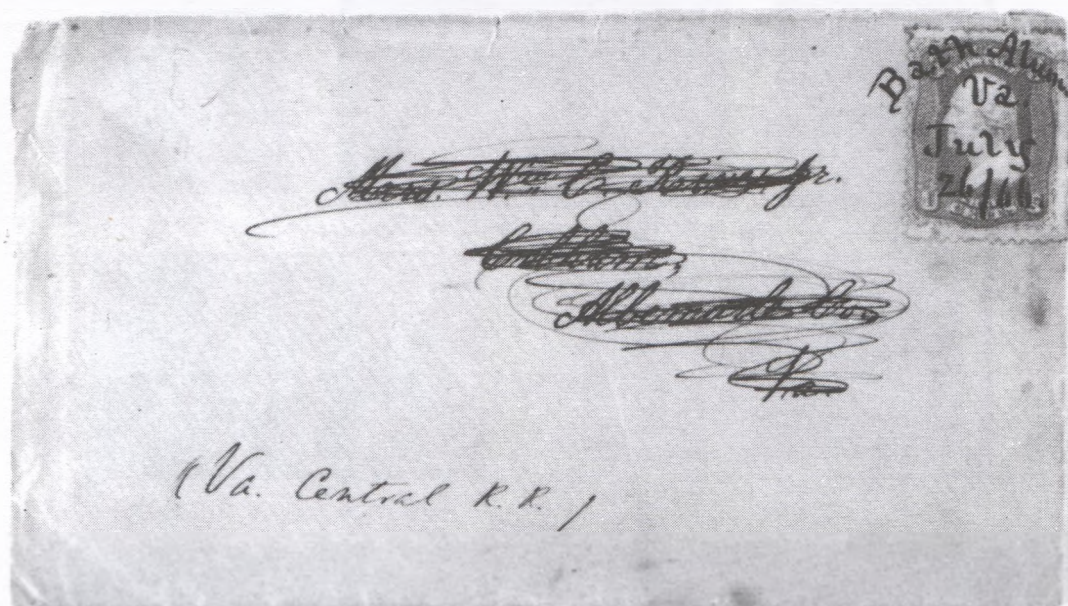 Bath Alum
Va.
July
26/66.
Mrs. Wm. C. Rives Jr.
Cobham,
Albemarle Co.
Va.
(Va. Central R. R.)